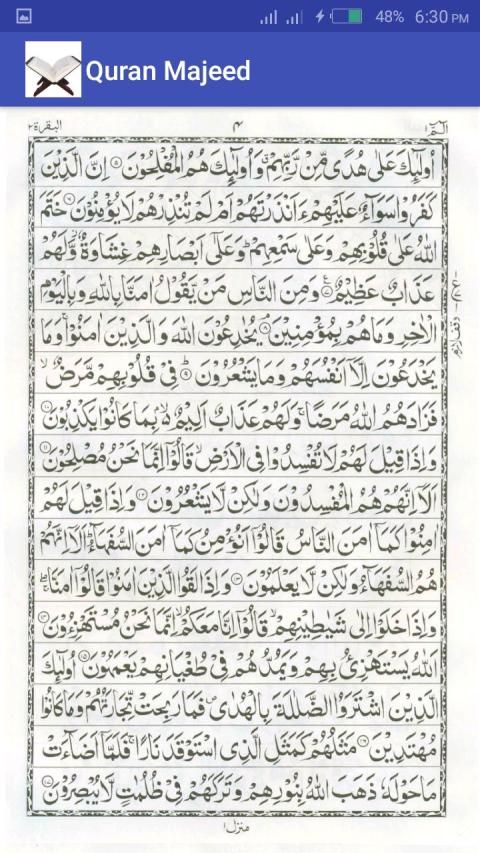 48% 6:30 PM
Quran Majeed
البقرة ٢ ٤ الٓمّٓ ١
اُولٰٓئِكَ عَلٰى هُدًى مِّنْ رَّبِّهِمْ ۙ وَاُولٰٓئِكَ هُمُ الْمُفْلِحُوْنَ ۝٥ اِنَّ الَّذِيْنَ
كَفَرُوْا سَوَآءٌ عَلَيْهِمْ ءَاَنْذَرْتَهُمْ اَمْ لَمْ تُنْذِرْهُمْ لَا يُؤْمِنُوْنَ ۝٦ خَتَمَ
اللّٰهُ عَلٰى قُلُوْبِهِمْ وَعَلٰى سَمْعِهِمْ ؕ وَعَلٰٓى اَبْصَارِهِمْ غِشَاوَةٌ ۫ وَّلَهُمْ
عَذَابٌ عَظِيْمٌ ۝٧ وَمِنَ النَّاسِ مَنْ يَّقُوْلُ اٰمَنَّا بِاللّٰهِ وَبِالْيَوْمِ
الْاٰخِرِ وَمَا هُمْ بِمُؤْمِنِيْنَ ۝٨ يُخٰدِعُوْنَ اللّٰهَ وَالَّذِيْنَ اٰمَنُوْا ۚ وَمَا
يَخْدَعُوْنَ اِلَّاۤ اَنْفُسَهُمْ وَمَا يَشْعُرُوْنَ ۝٩ فِيْ قُلُوْبِهِمْ مَّرَضٌ ۙ
فَزَادَهُمُ اللّٰهُ مَرَضًا ۚ وَلَهُمْ عَذَابٌ اَلِيْمٌۢ ۙ بِمَا كَانُوْا يَكْذِبُوْنَ ۝١٠
وَاِذَا قِيْلَ لَهُمْ لَا تُفْسِدُوْا فِي الْاَرْضِ ۙ قَالُوْۤا اِنَّمَا نَحْنُ مُصْلِحُوْنَ ۝١١
اَلَاۤ اِنَّهُمْ هُمُ الْمُفْسِدُوْنَ وَلٰكِنْ لَّا يَشْعُرُوْنَ ۝١٢ وَاِذَا قِيْلَ لَهُمْ
اٰمِنُوْا كَمَاۤ اٰمَنَ النَّاسُ قَالُوْۤا اَنُؤْمِنُ كَمَاۤ اٰمَنَ السُّفَهَآءُ ؕ اَلَاۤ اِنَّهُمْ
هُمُ السُّفَهَآءُ وَلٰكِنْ لَّا يَعْلَمُوْنَ ۝١٣ وَاِذَا لَقُوا الَّذِيْنَ اٰمَنُوْا قَالُوْۤا اٰمَنَّا ۖۚ
وَاِذَا خَلَوْا اِلٰى شَيٰطِيْنِهِمْ ۙ قَالُوْۤا اِنَّا مَعَكُمْ ۙ اِنَّمَا نَحْنُ مُسْتَهْزِءُوْنَ ۝١٤
اَللّٰهُ يَسْتَهْزِئُ بِهِمْ وَيَمُدُّهُمْ فِيْ طُغْيَانِهِمْ يَعْمَهُوْنَ ۝١٥ اُولٰٓئِكَ
الَّذِيْنَ اشْتَرَوُا الضَّلٰلَةَ بِالْهُدٰى ۪ فَمَا رَبِحَتْ تِّجَارَتُهُمْ وَمَا كَانُوْا
مُهْتَدِيْنَ ۝١٦ مَثَلُهُمْ كَمَثَلِ الَّذِي اسْتَوْقَدَ نَارًا ۚ فَلَمَّاۤ اَضَآءَتْ
مَا حَوْلَهٗ ذَهَبَ اللّٰهُ بِنُوْرِهِمْ وَتَرَكَهُمْ فِيْ ظُلُمٰتٍ لَّا يُبْصِرُوْنَ ۝١٧
منزل ١